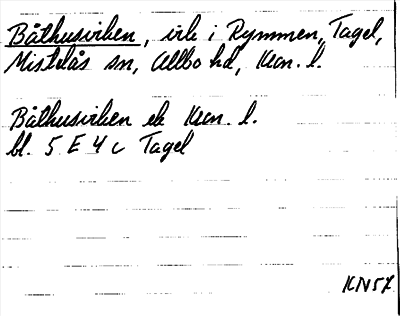 Båthusviken, vik i Rymmen, Tagel,
Mistelås sn, Allbo hd, Kron. l.
Båthusviken ek Kron. l.
bl. 5 E 4 c Tagel
KN57